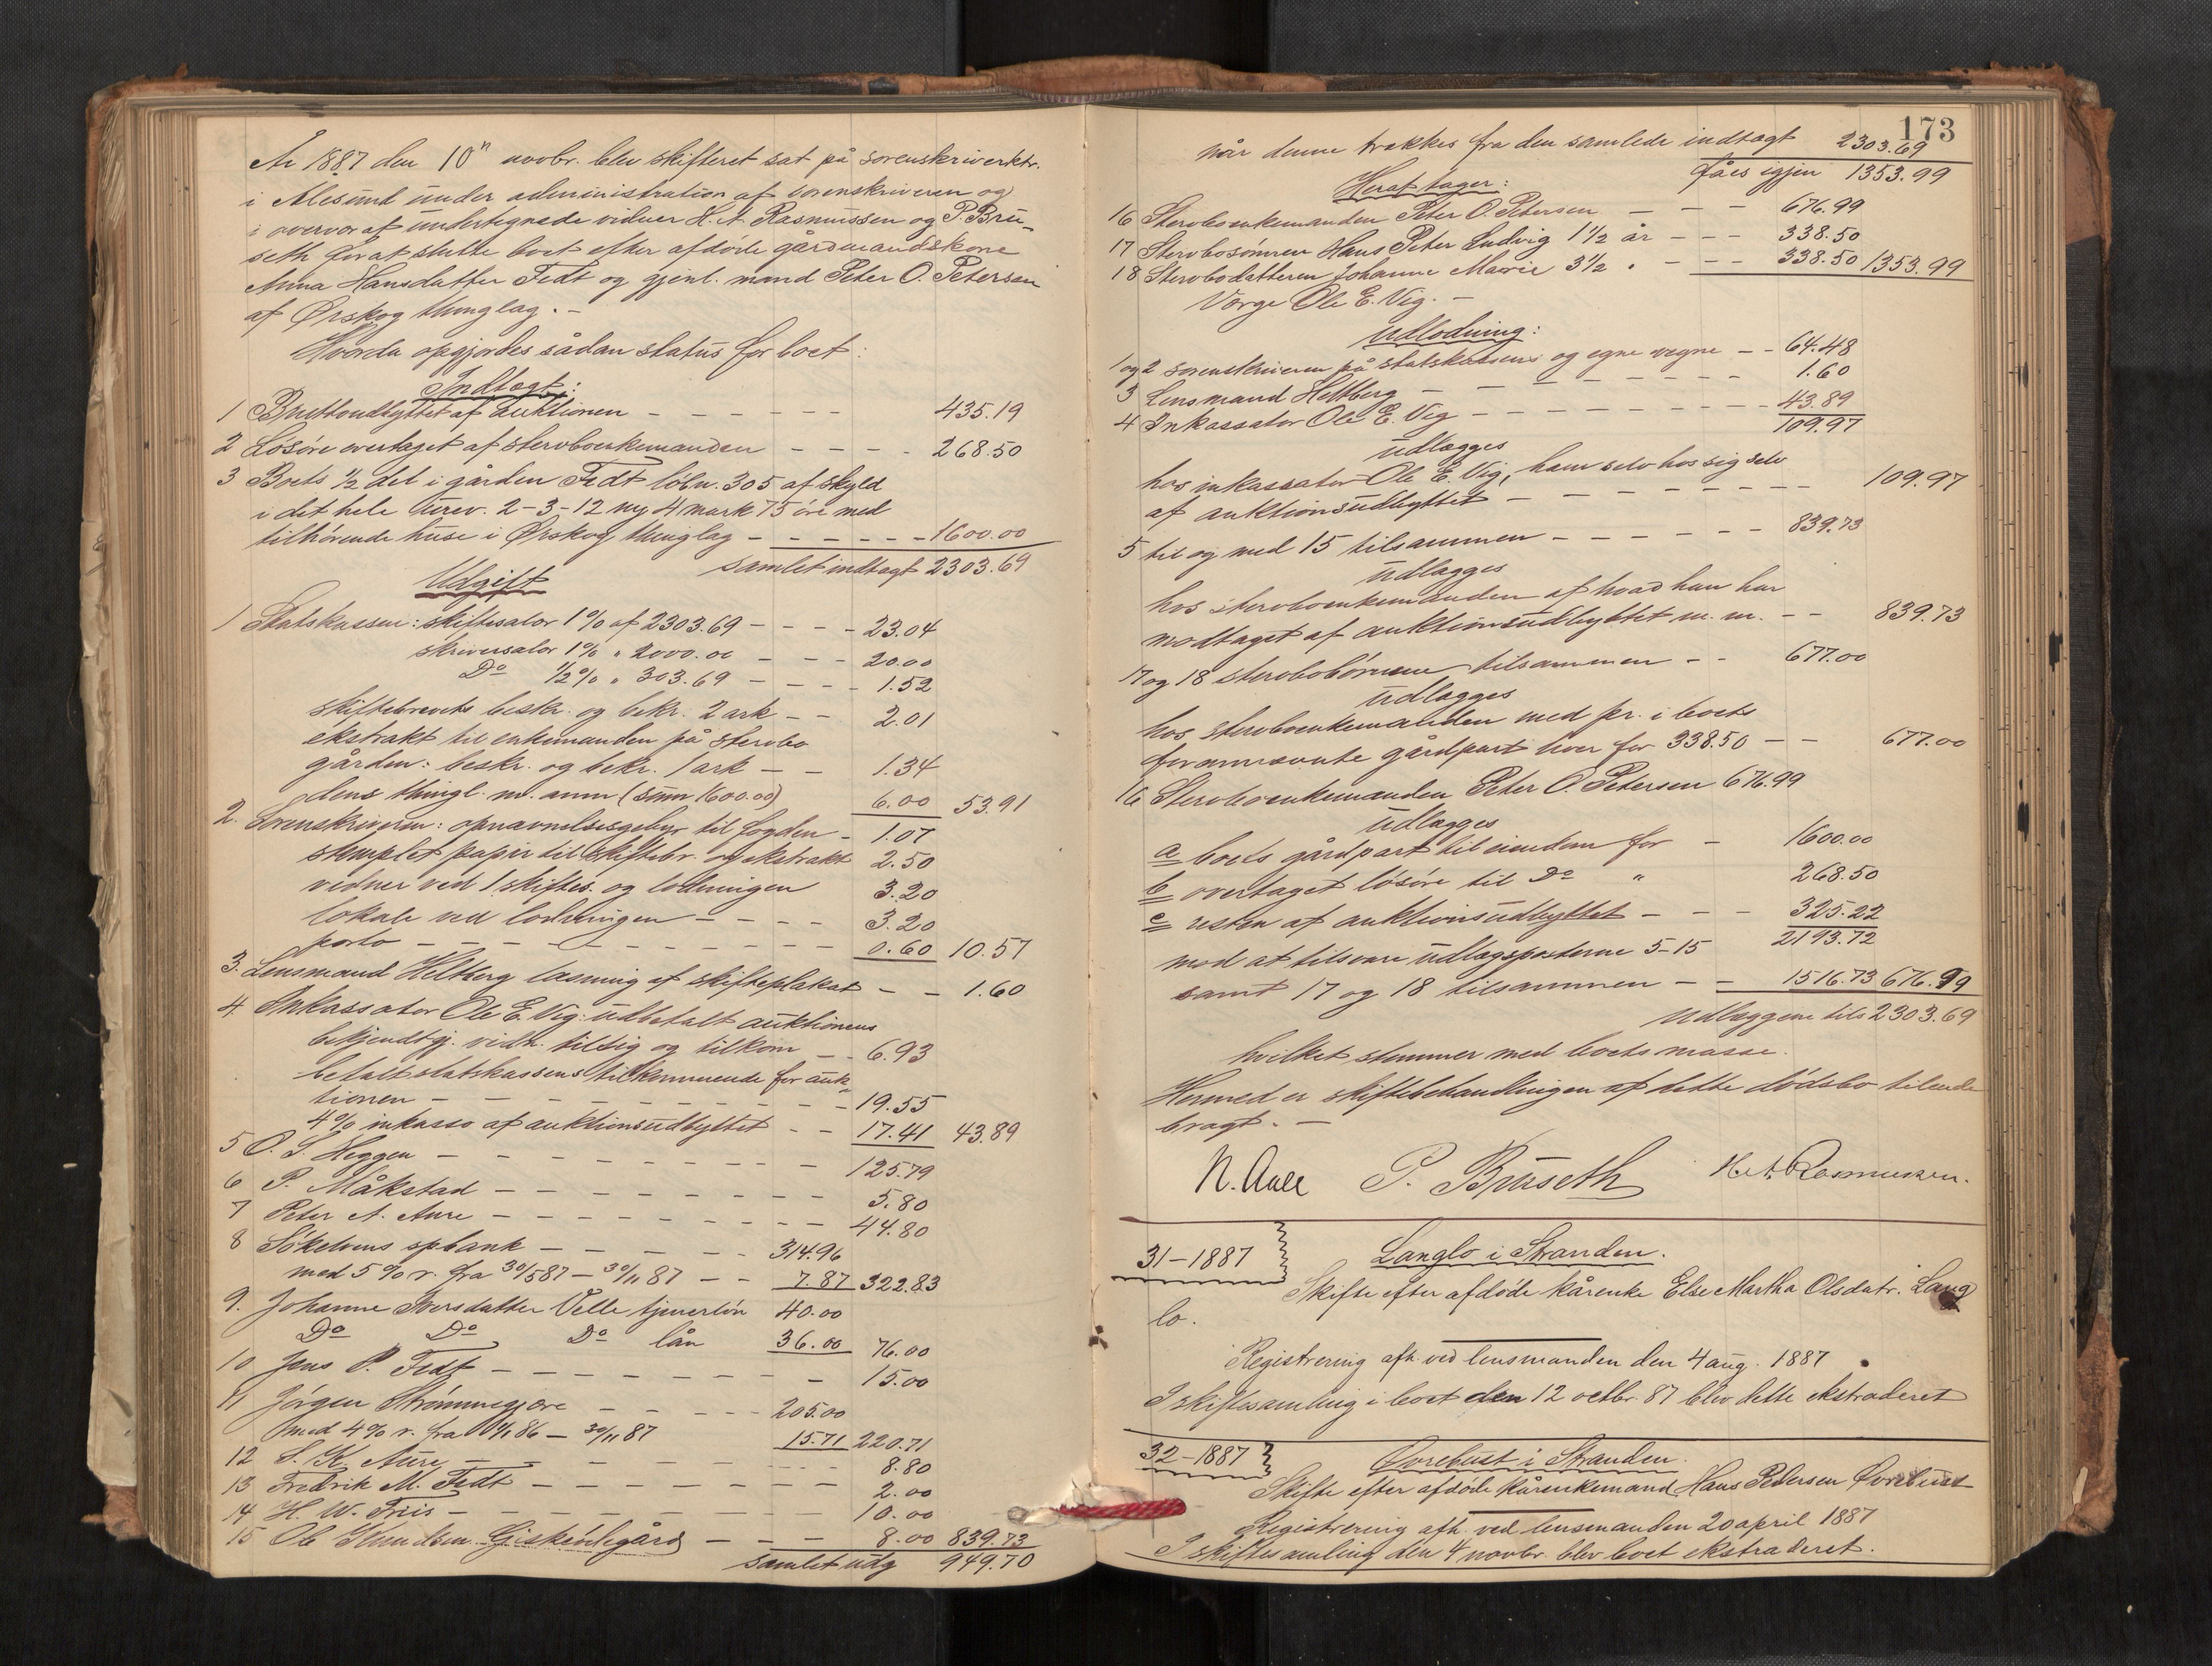 År 1887 den 10n novbr. blev skifteret sat på sorenskriverktr.
i Ålesund under administration af sorenskriveren og
i overvær af undertegnede vidner H. A. Rasmussen og P. Bru-
seth for at slutte boet efter afdøde gårdmandskone
Anna Hansdatter Fedt og gjenl. mand Peter O. Petersen
af Ørskog thinglag. -
Hvorda opgjordes sådan status for boet:
Indtægt:
1 Bruttoudbyttet af auktionen - - - - - - 435.19
2 Løsøre overtaget af sterboenkemanden - - - - 268.50
3 Boets ½ del i gården Fedt løbn. 305 af skyld
i det hele urev. 2-3-12 ny 4 mark 75 öre med
tilhörende huse i Ørskog thinglag - - - - - - 1600.00
samlet indtægt 2303.69
Udgift
1 Statskassen: skiftesalær 1% af 2303.69 - - - - 23.04
skriversalær 1% " 2000.00 - - - 20.00
Do ½% " 303.69 - - - - 1.52
skiftebrevets beskr. og bekr. 2 ark - - 2.01
ekstrakt til enkemanden på sterbo
gården: beskr. og bekr. 1 ark - - 1.34
dens thingl. m. anm (sum 1600.00) 6.00 53.91
2. Sorenskriveren: opnævnelsesgebyr til fogden - 1.07
stemplet papir til skiftebr. og ekstrakt 2.50
vidner ved 1 skiftes. og lodningen 3.20
lokale ved lodningen - - - - 3.20
porto - - - - - - - - - - 0.60 10.57
3. Lensmand Heltberg læsning af skifteplakat - - 1.60
4 Inkassator Ole E. Vig: udbetalt auktionens
bekjendtgj. vidn. tilsig og tilkom - - 6.93
betalt statskassens tilkommende for auk-
tionen - - - - - - - - - - 19.55
4% inkasso af auktionsudbyttet - - 17.41 43.89
5 O. S. Heggen - - - - - - - - 125.79
6 P. Måkstad - - - - - - - - 5.80
7 Peter A. Aure - - - - - - - - 44.80
8 Søkelvens spbank - - - - - - 314.96
med 5% r. fra 30/5 87 - 30/11 87 - - 7.87 322.83
9. Johanne Iversdatter Velle tjenerløn 40.00
Do Do Do lån 36.00 76.00
10 Jens P. Fedt - - - - - - - - 15.00
11 Jørgen Strømmegjære - - - - - 205.00
med 4% r. fra - 30/11 87 15.71 220.71
12 S. K. Aure - - - - - - - - 8.80
13 Fredrik M. Fedt - - - - - - - 2.00
14 H. W. Friis - - - - - - - - 10.00
15 Ole Knudsen Giskeødegård - - - 8.00 839.73
samlet udg 949.70
173
når denne trækkes fra den samlede indtægt 2303.69
fåes igjen 1353.99
Heraf tager:
16 Sterboenkemanden Peter O. Petersen - - - 676.99
17 Sterbosønnen Hans Peter Ludvig 1½ år - - - 338.50
18 Sterbodatteren Johanne Marie 3½ " - - - 338.50 1353.99
Værge Ole E. Vig. -
Udlodning:
1 og 2 sorenskriveren på statskassens og egne vegne - - 64.48
3 Lensmand Heltberg - - - - - - - - 1.60
4 Inkassator Ole E. Vig - - - - - - - - - 43.89
109.97
udlægges
hos inkassator Ole E. Vig, ham selv hos sig selv
af auktionsudbyttet - - - - - - - - 109.97
5 til og med 15 tilsammen - - - - - - 839.73
udlægges
hos sterboenkemanden af hvad han har
modtaget af auktionsudbyttet m. m. - - 839.73
17 og 18 sterbobörnene tilsammen - - 677.00
udlægges
hos sterboenkemanden med pr. i boets
forannævnte gårdpart hver for 338.50 - - 677.00
16 Sterboenkemanden Peter O. Petersen 676.99
udlægges
a boets gårdpart til eiendom for - 1600.00
b overtaget løsøre til Do " 268.50
c resten af auktionsudbyttet - - - 325.22
2193.72
mod at tilsvare udlægsposterne 5-15
samt 17 og 18 tilsammen - - 1516.73 676.99
udlæggene tils 2303.69
hvilket stemmer med boets masse.
Hermed er skiftebehandlingen af dette dødsbo tilende
bragt. -
N. Aall P. Brüseth H. A. Rasmussen.
31-1887 Langlo i Stranden.
Skifte efter afdøde kårenke Else Martha Olsdatr. Lang
lo.
Registrering afh. ved lensmanden den 4 aug. 1887
I skiftesamling i boet den 12 octbr. 87 blev dette ekstraderet
32-1887 Øvrebust i Stranden.
Skifte efter afdøde kårenkemand Hans Pedersen Øvrebust
Registrering afh. ved lensmanden 20 april 1887
I skiftesamling den 4 novbr. blev boet ekstraderet.